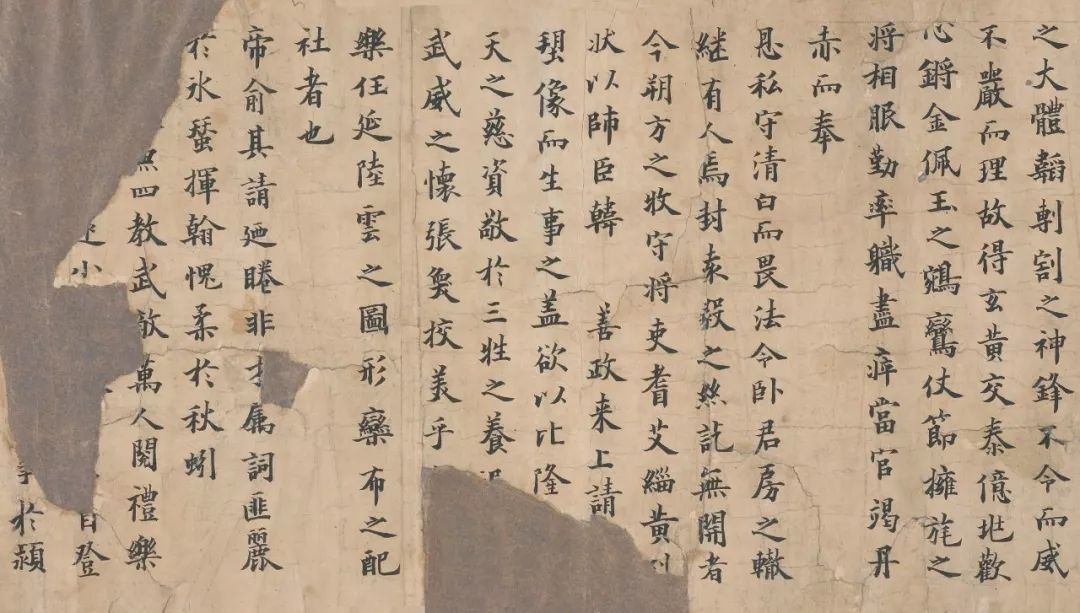 之大體韜剸割之神鋒不令而威
不嚴而理故得玄黄交泰億兆歡
心鏘金佩玉之鵷鸞仗節擁旄之
将相服勤率職盡瘁當官竭丹
赤而奉
恩私守清白而畏法令卧君房之轍
継有人焉封袁毅之絲訖無開者
今朔方之牧守将吏耆艾緇黄
狀以帥臣韓 善政来上請
塑像而生事之盖欲以比隆
天之慈資敬於三牲之養
武威之懷張奐挍美乎
樂任延陸雲之圖形欒布之配
社者也
帝俞其請廼睠非才属詞匪麗
於氷蠶揮翰愧柔於秋蚓
四教武敵萬人閱禮樂
小 登
於潁